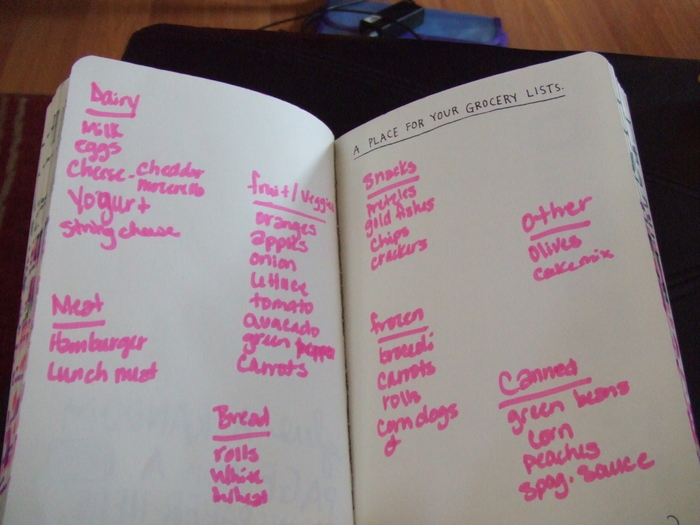 Dairy
Milk
eggs
Cheese - Cheddar
mozerella
Yogurt
String cheese
Meat
Hamburger
Lunch meat
fruit/veggies
oranges
apples
onion
lettuce
tomato
avacado
green pepper
Carrots
Bread
rolls
White
Wheat
A PLACE FOR YOUR GROCERY LISTS.
Snacks
pretzles
gold fishes
Chips
crackers
frozen
brocoli
carrots
rolls
corn dogs
Other
Olives
cake mix
Canned
green beans
corn
peaches
spag. sauce